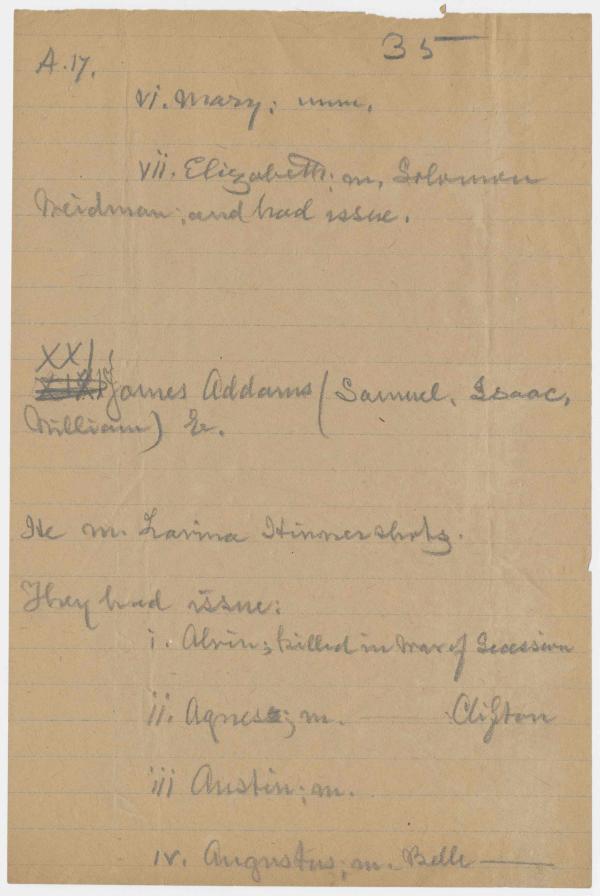 35
A.17.
vi. Mary; unm.
vii. Elizabeth; m. Solomon
Weidman; and had issue.
XXI
James Addams (Samuel, Isaac,
William) &.
He m. Lavina Hinnershotz.
They had issue:
i. Alvin; killed in War of Secession
ii. Agnes; m. —— Clifton
iii Austin; m.
iv. Augustus; m. Belle ——